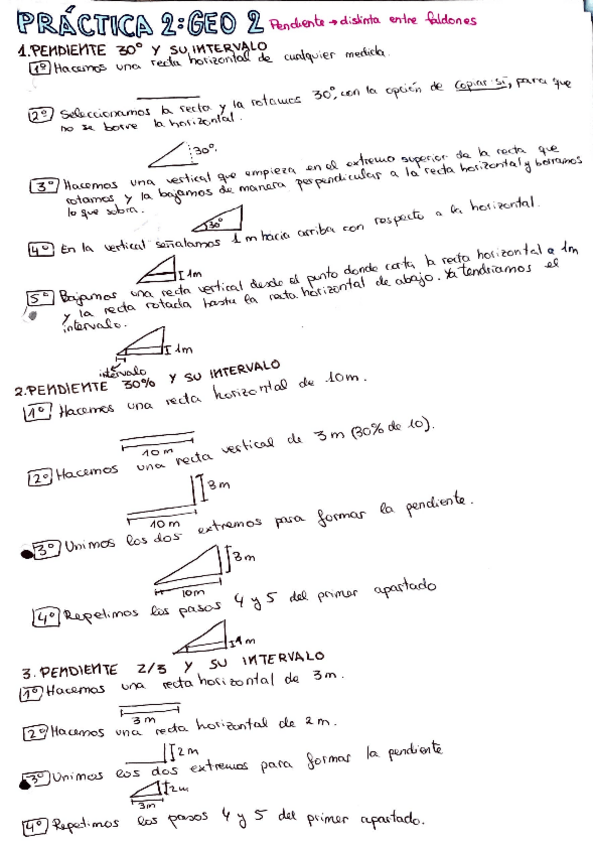 PRÁCTICA 2: GEO 2 Pendiente → distinta entre faldones
1. PENDIENTE 30° Y SU INTERVALO
1º Hacemos una recta horizontal de cualquier medida.
2º Seleccionamos la recta y la rotamos 30°, con la opción de copiar: sí, para que
no se borre la horizontal.
30°.
3º Hacemos una vertical que empieza en el extremo superior de la recta que
rotamos y la bajamos de manera perpendicular a la recta horizontal y borramos
lo que sobra.
30°
4º En la vertical señalamos 1m hacia arriba con respecto a la horizontal.
1m
5º Bajamos una recta vertical desde el punto donde corta la recta horizontal a 1m
y la recta rotada hasta la recta horizontal de abajo. Ya tendríamos el
intervalo.
1m
intervalo
2. PENDIENTE 30% Y SU INTERVALO
1º Hacemos una recta horizontal de 10m.
10 m
2º Hacemos una recta vertical de 3 m (30% de 10).
3m
10 m
3º Unimos los dos extremos para formar la pendiente.
3m
10m
4º Repetimos los pasos 4 y 5 del primer apartado
1m
3. PENDIENTE 2/3 Y SU INTERVALO
1º Hacemos una recta horizontal de 3m.
3 m
2º Hacemos una recta horizontal de 2m.
2m
3º Unimos los dos extremos para formar la pendiente
2m
3m
4º Repetimos los pasos 4 y 5 del primer apartado.